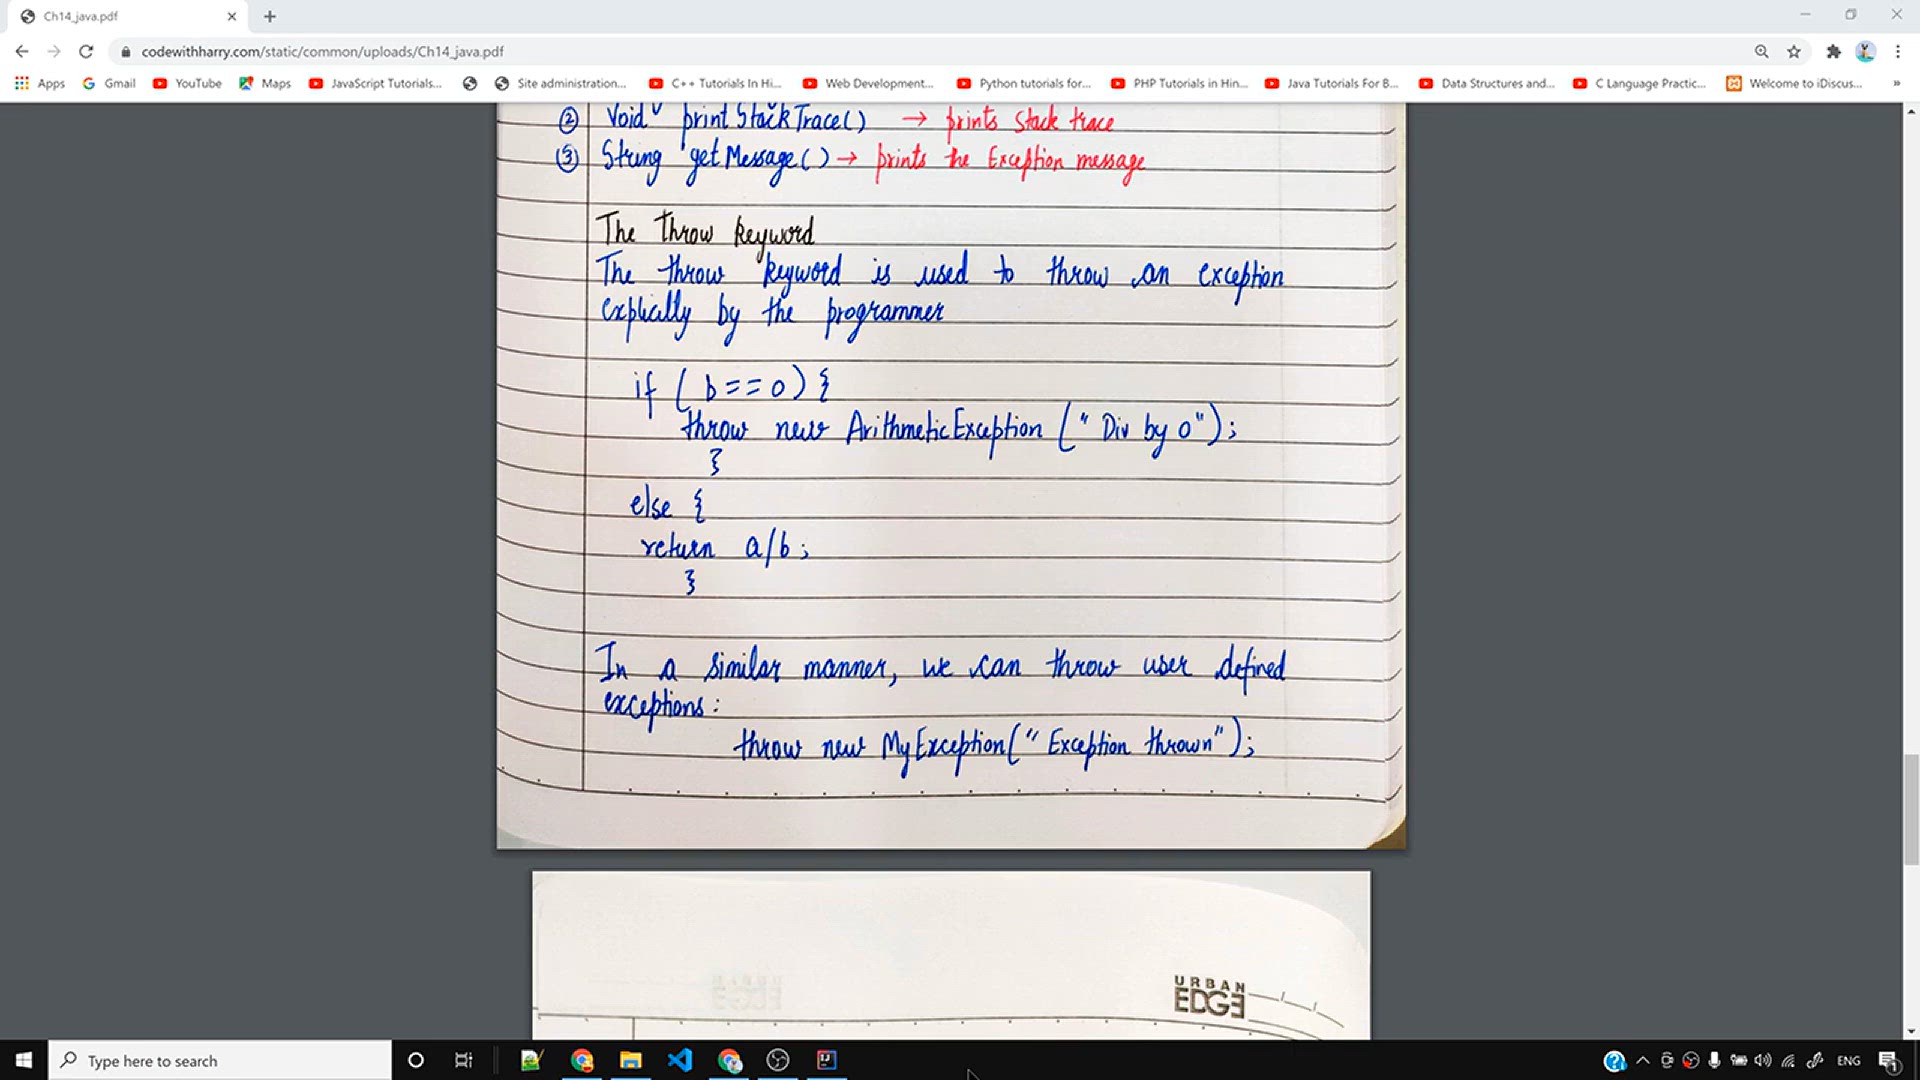 Ch14_java.pdf
codewithharry.com/static/common/uploads/Ch14_java.pdf
Apps Gmail YouTube Maps JavaScript Tutorials... Site administration... C++ Tutorials In Hi... Web Development... Python tutorials for... PHP Tutorials in Hin... Java Tutorials For B... Data Structures and... C Language Practic... Welcome to iDiscus... »
② Void printStackTrace() → prints Stack trace
③ String getMessage() → prints the Exception message
The Throw keyword
The throw keyword is used to throw an exception
explically by the programmer
if ( b==0) {
throw new ArithmeticException (" Div by 0");
}
else {
return a/b;
}
In a similar manner, we can throw user defined
exceptions:
throw new MyException(" Exception thrown");
URBAN
EDGE
Type here to search
ENG
1